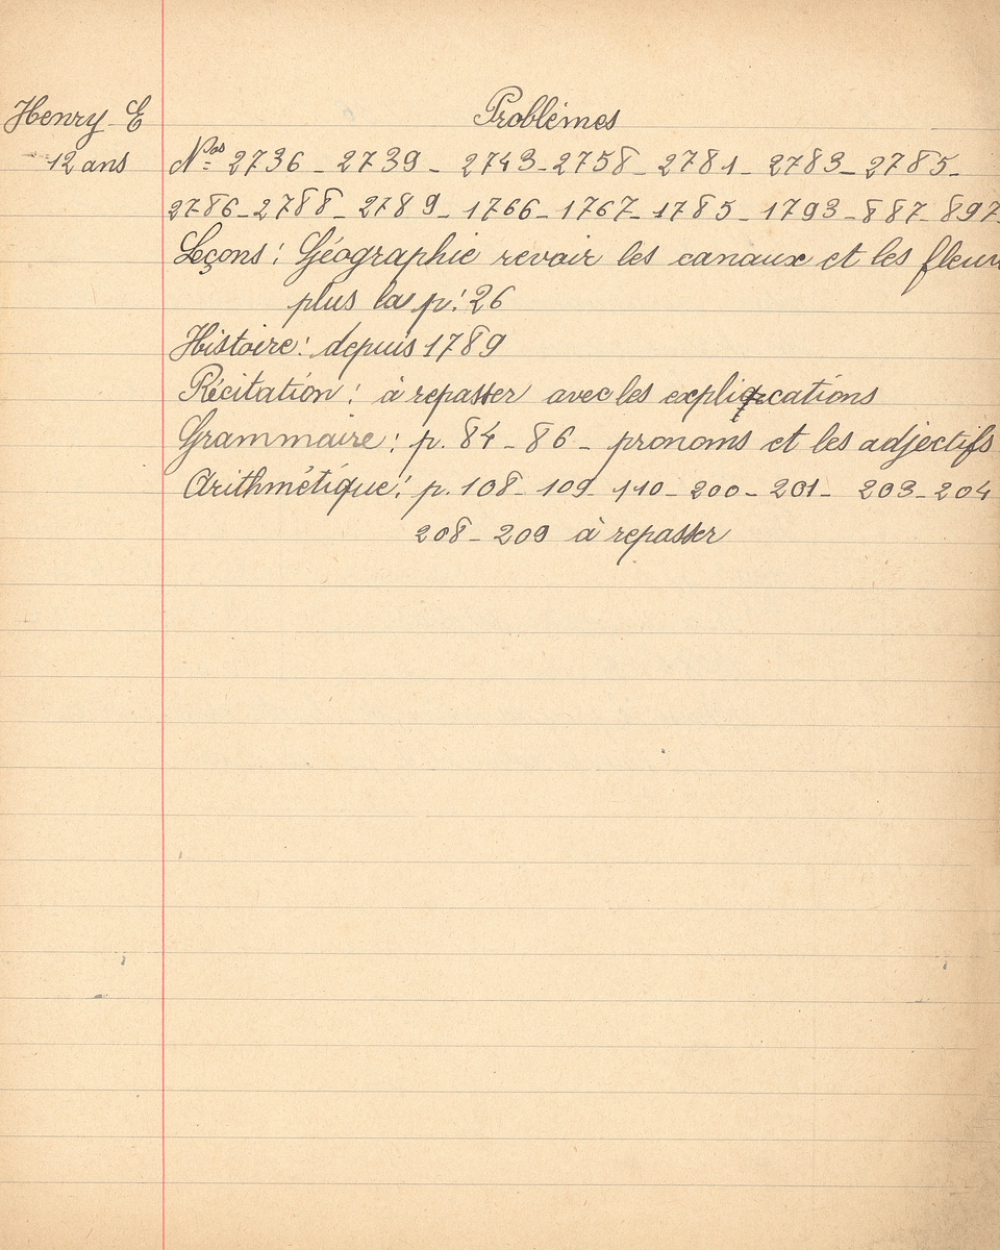 Henry E
12 ans
Problèmes
Nos 2736 - 2739 - 2743 - 2758 - 2781 - 2783 - 2785 -
2786 - 2788 - 2789 - 1766 - 1767 - 1785 - 1793 - 887 - 897
Leçons : Géographie revoir les canaux et les
plus la p : 26
Histoire : depuis 1789
Récitation : à repasser avec les explications
Grammaire : p. 84 - 86 - pronoms et les adjectifs
Arithmétique : p. 108 - 109 - 110 - 200 - 201 - 203 - 204
208 - 209 à repasser